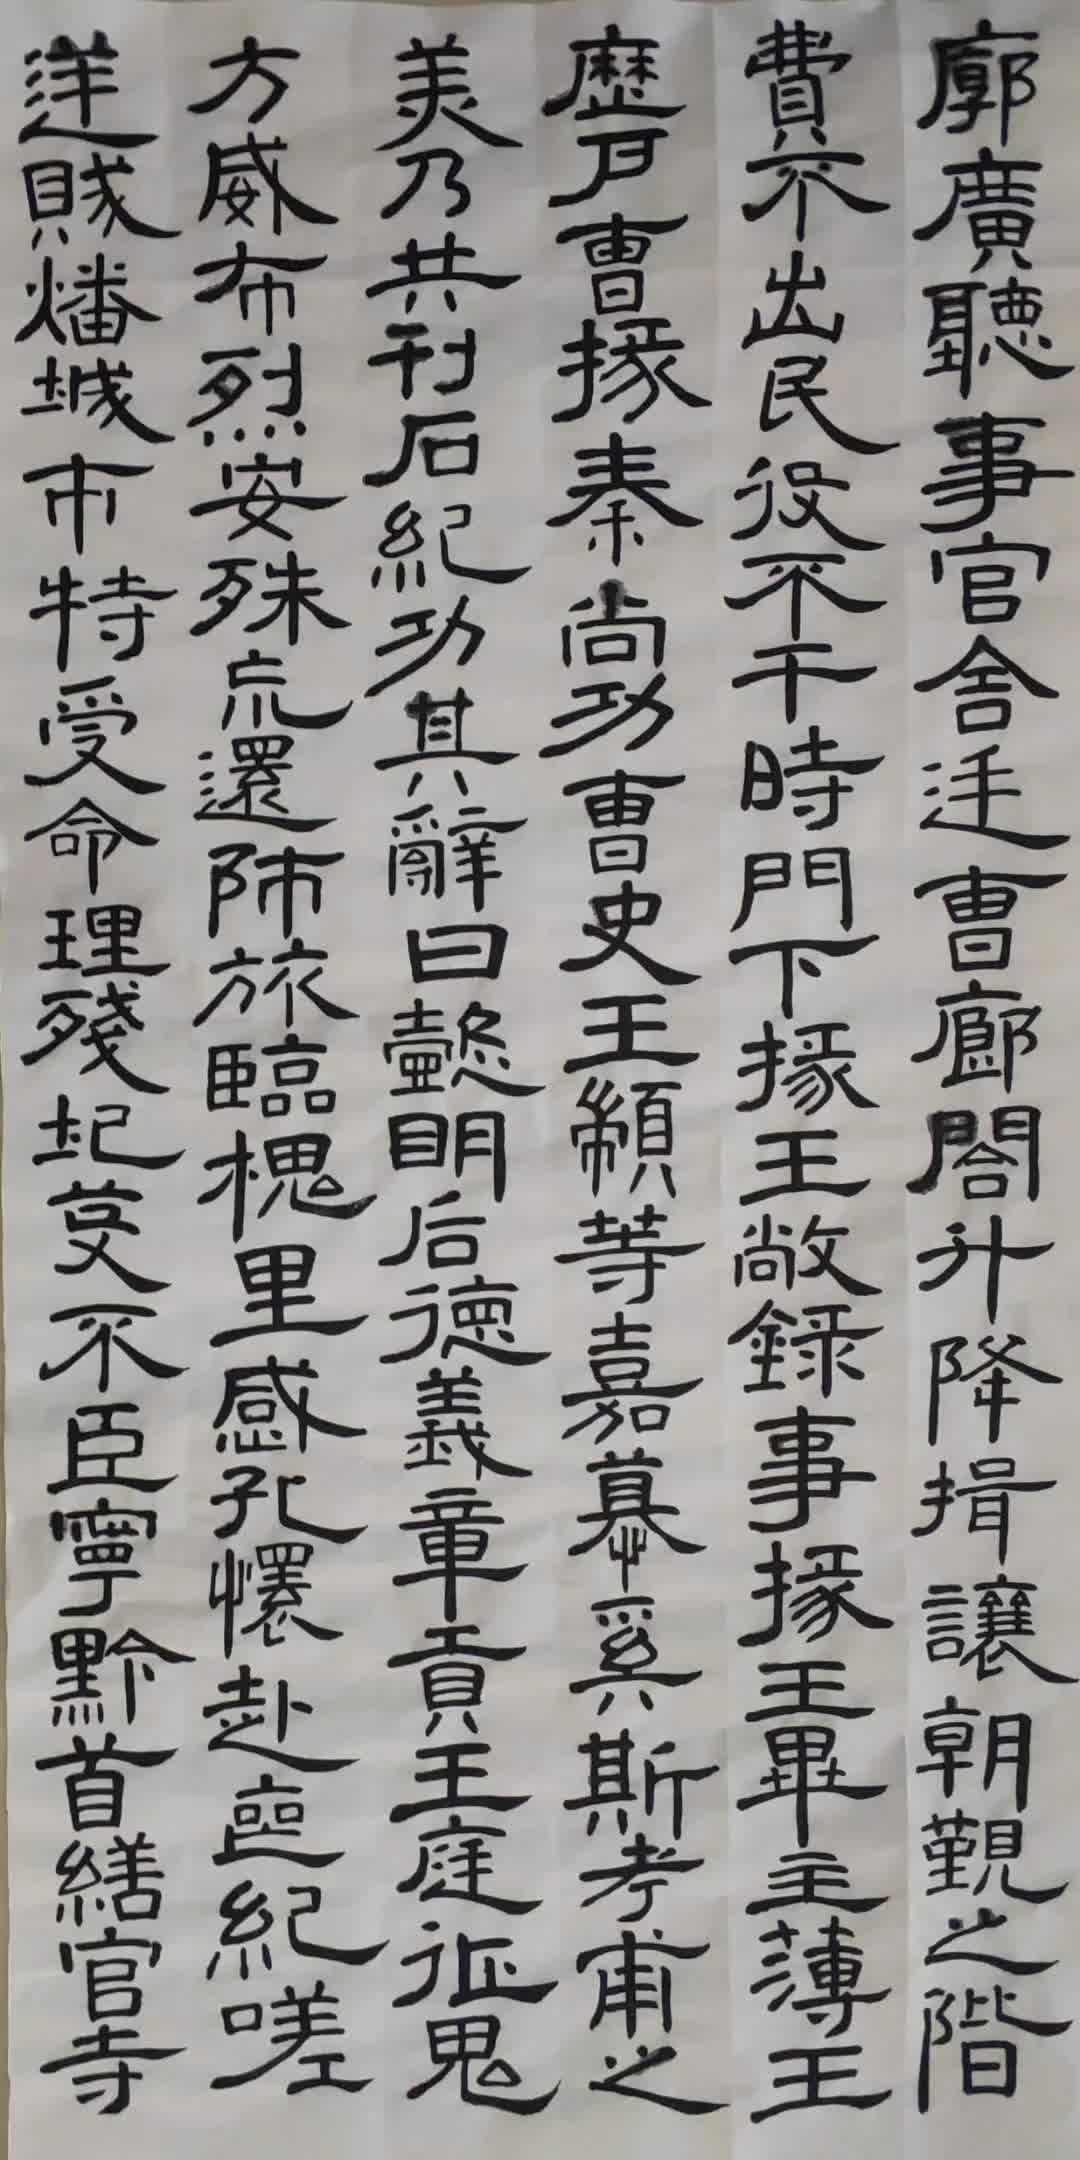 廓廣聽事官舍廷曹廊閤升降揖讓朝覲之階
費不出民役不干時門下掾王敞錄事掾王畢主薄王
歷戶曹掾秦尚功曹史王顓等嘉慕奚斯考甫之
美乃共刊石紀功其辭曰懿明后德義章貢王庭征鬼
方威布烈安殊荒還師旅臨槐里感孔懷赴喪紀嗟
逆賊燔城市特受命理殘圮芟不臣寧黔首繕官寺